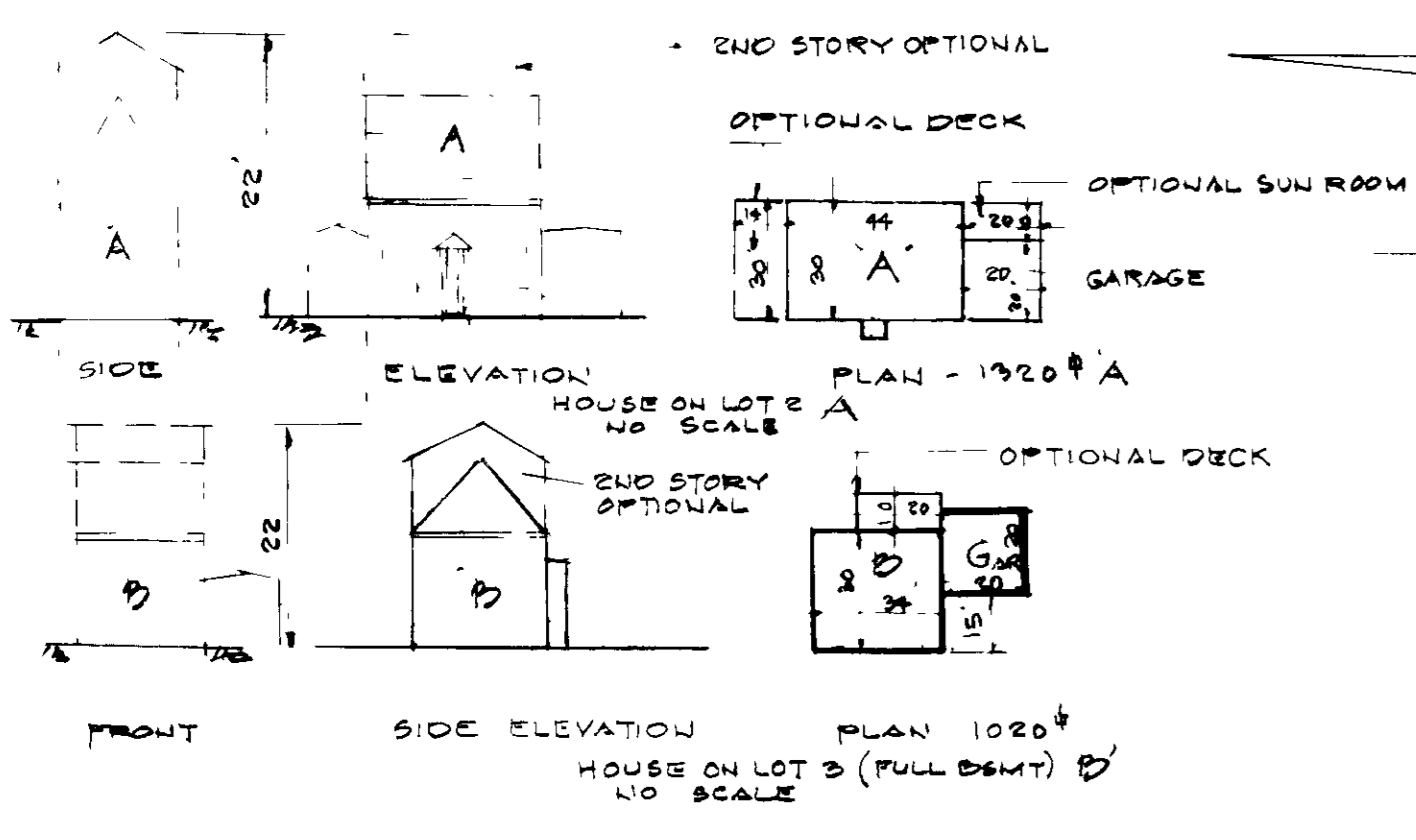 2ND STORY OPTIONAL
OPTIONAL DECK
OPTIONAL SUN ROOM
22'
A
A
14
30
30
44
'A'
20
20
20
GARAGE
SIDE
ELEVATION
PLAN - 1320 A
HOUSE ON LOT 2 A
NO SCALE
OPTIONAL DECK
2ND STORY
OPTIONAL
22
B
B
10
20
30
B
34
GAR
20
20
15'
FRONT
SIDE ELEVATION
PLAN 1020
HOUSE ON LOT 3 (FULL BSMT) B'
NO SCALE